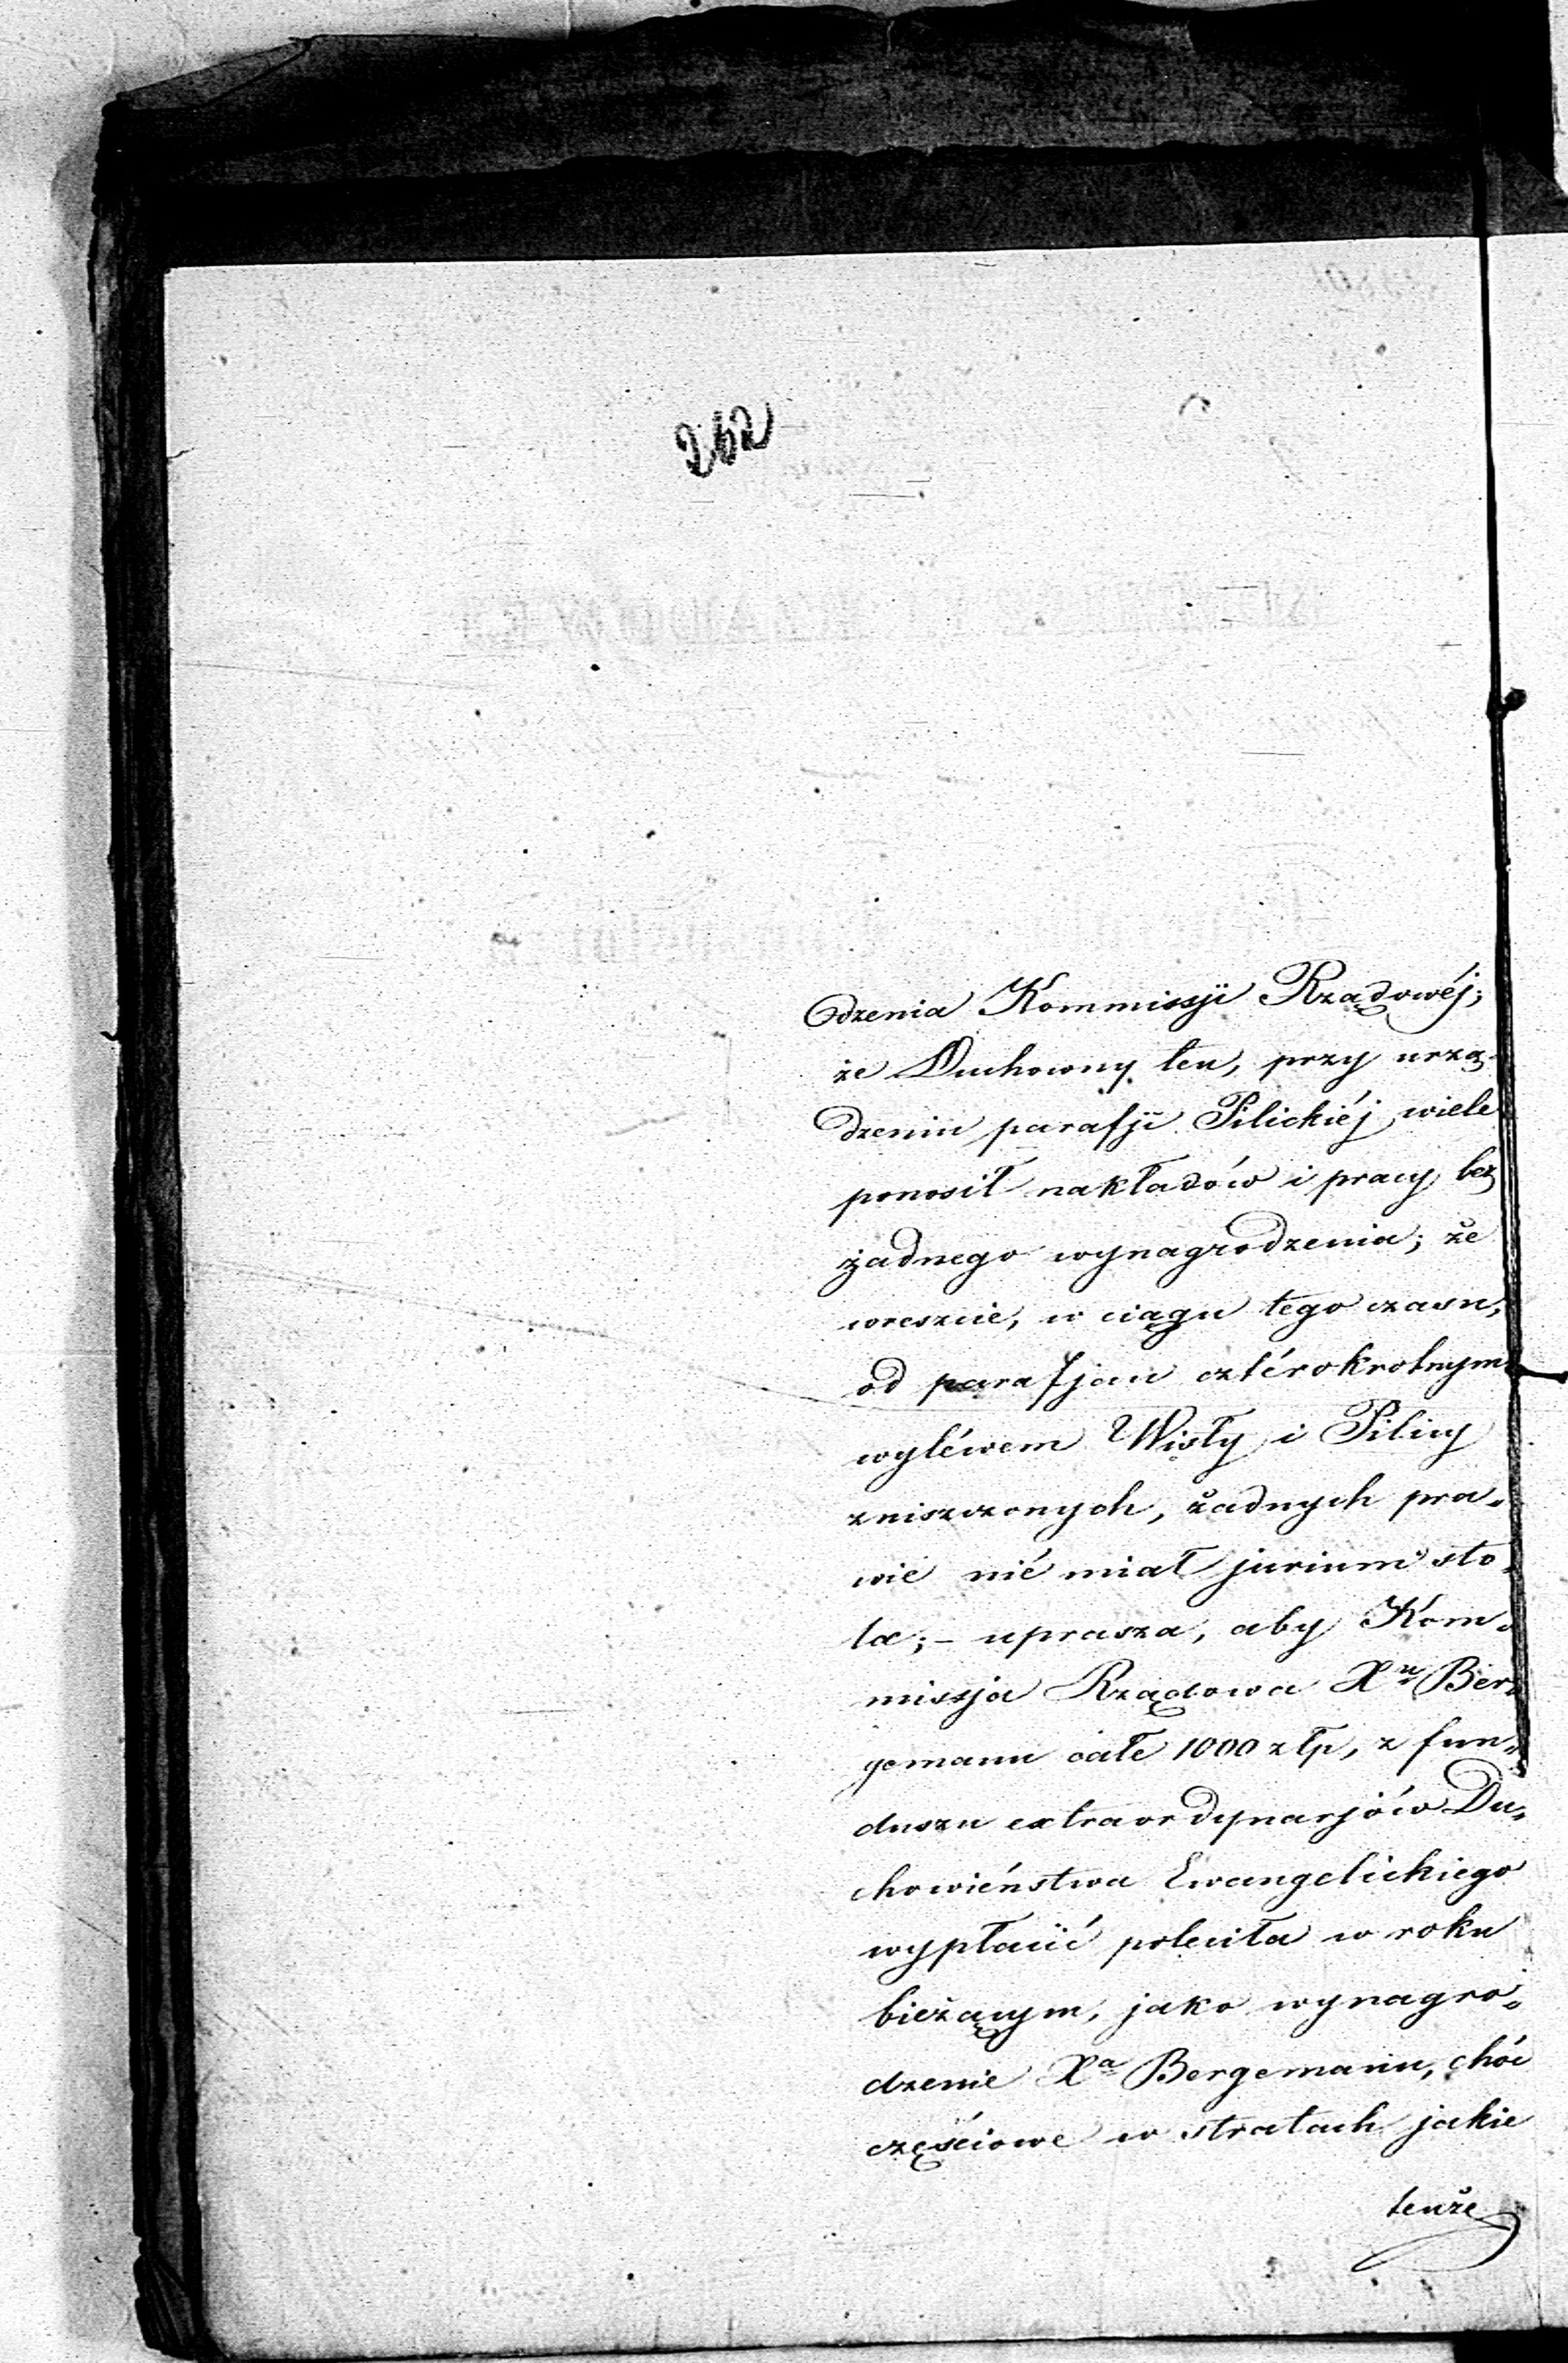 262
dzenia Kommissji Rządowéj;
że Duchowny ten, przy urzą-
dzeniu parafji Pilickiéj wiele
ponosił nakładów i pracy bez
żadnego wynagrodzenia; że
wreszcie, w ciągu tego czasu,
od parafjan cztérokrotnym
wyléwem Wisły i Pilicy
zniszczonych, żadnych pra-
wie nié miał jurium sto-
læ; – uprasza, aby Kom-
missja Rządowa Xu Ber-
gemann całe 1000 złp, z fun-
duszu extraordynarjów Du-
chowiéństwa Ewangelickiego
wypłacić poleciła w roku
bieżącym, jako wynagro-
dzenie Xa Bergemann, choć
częściowe w stratach jakie
tenże